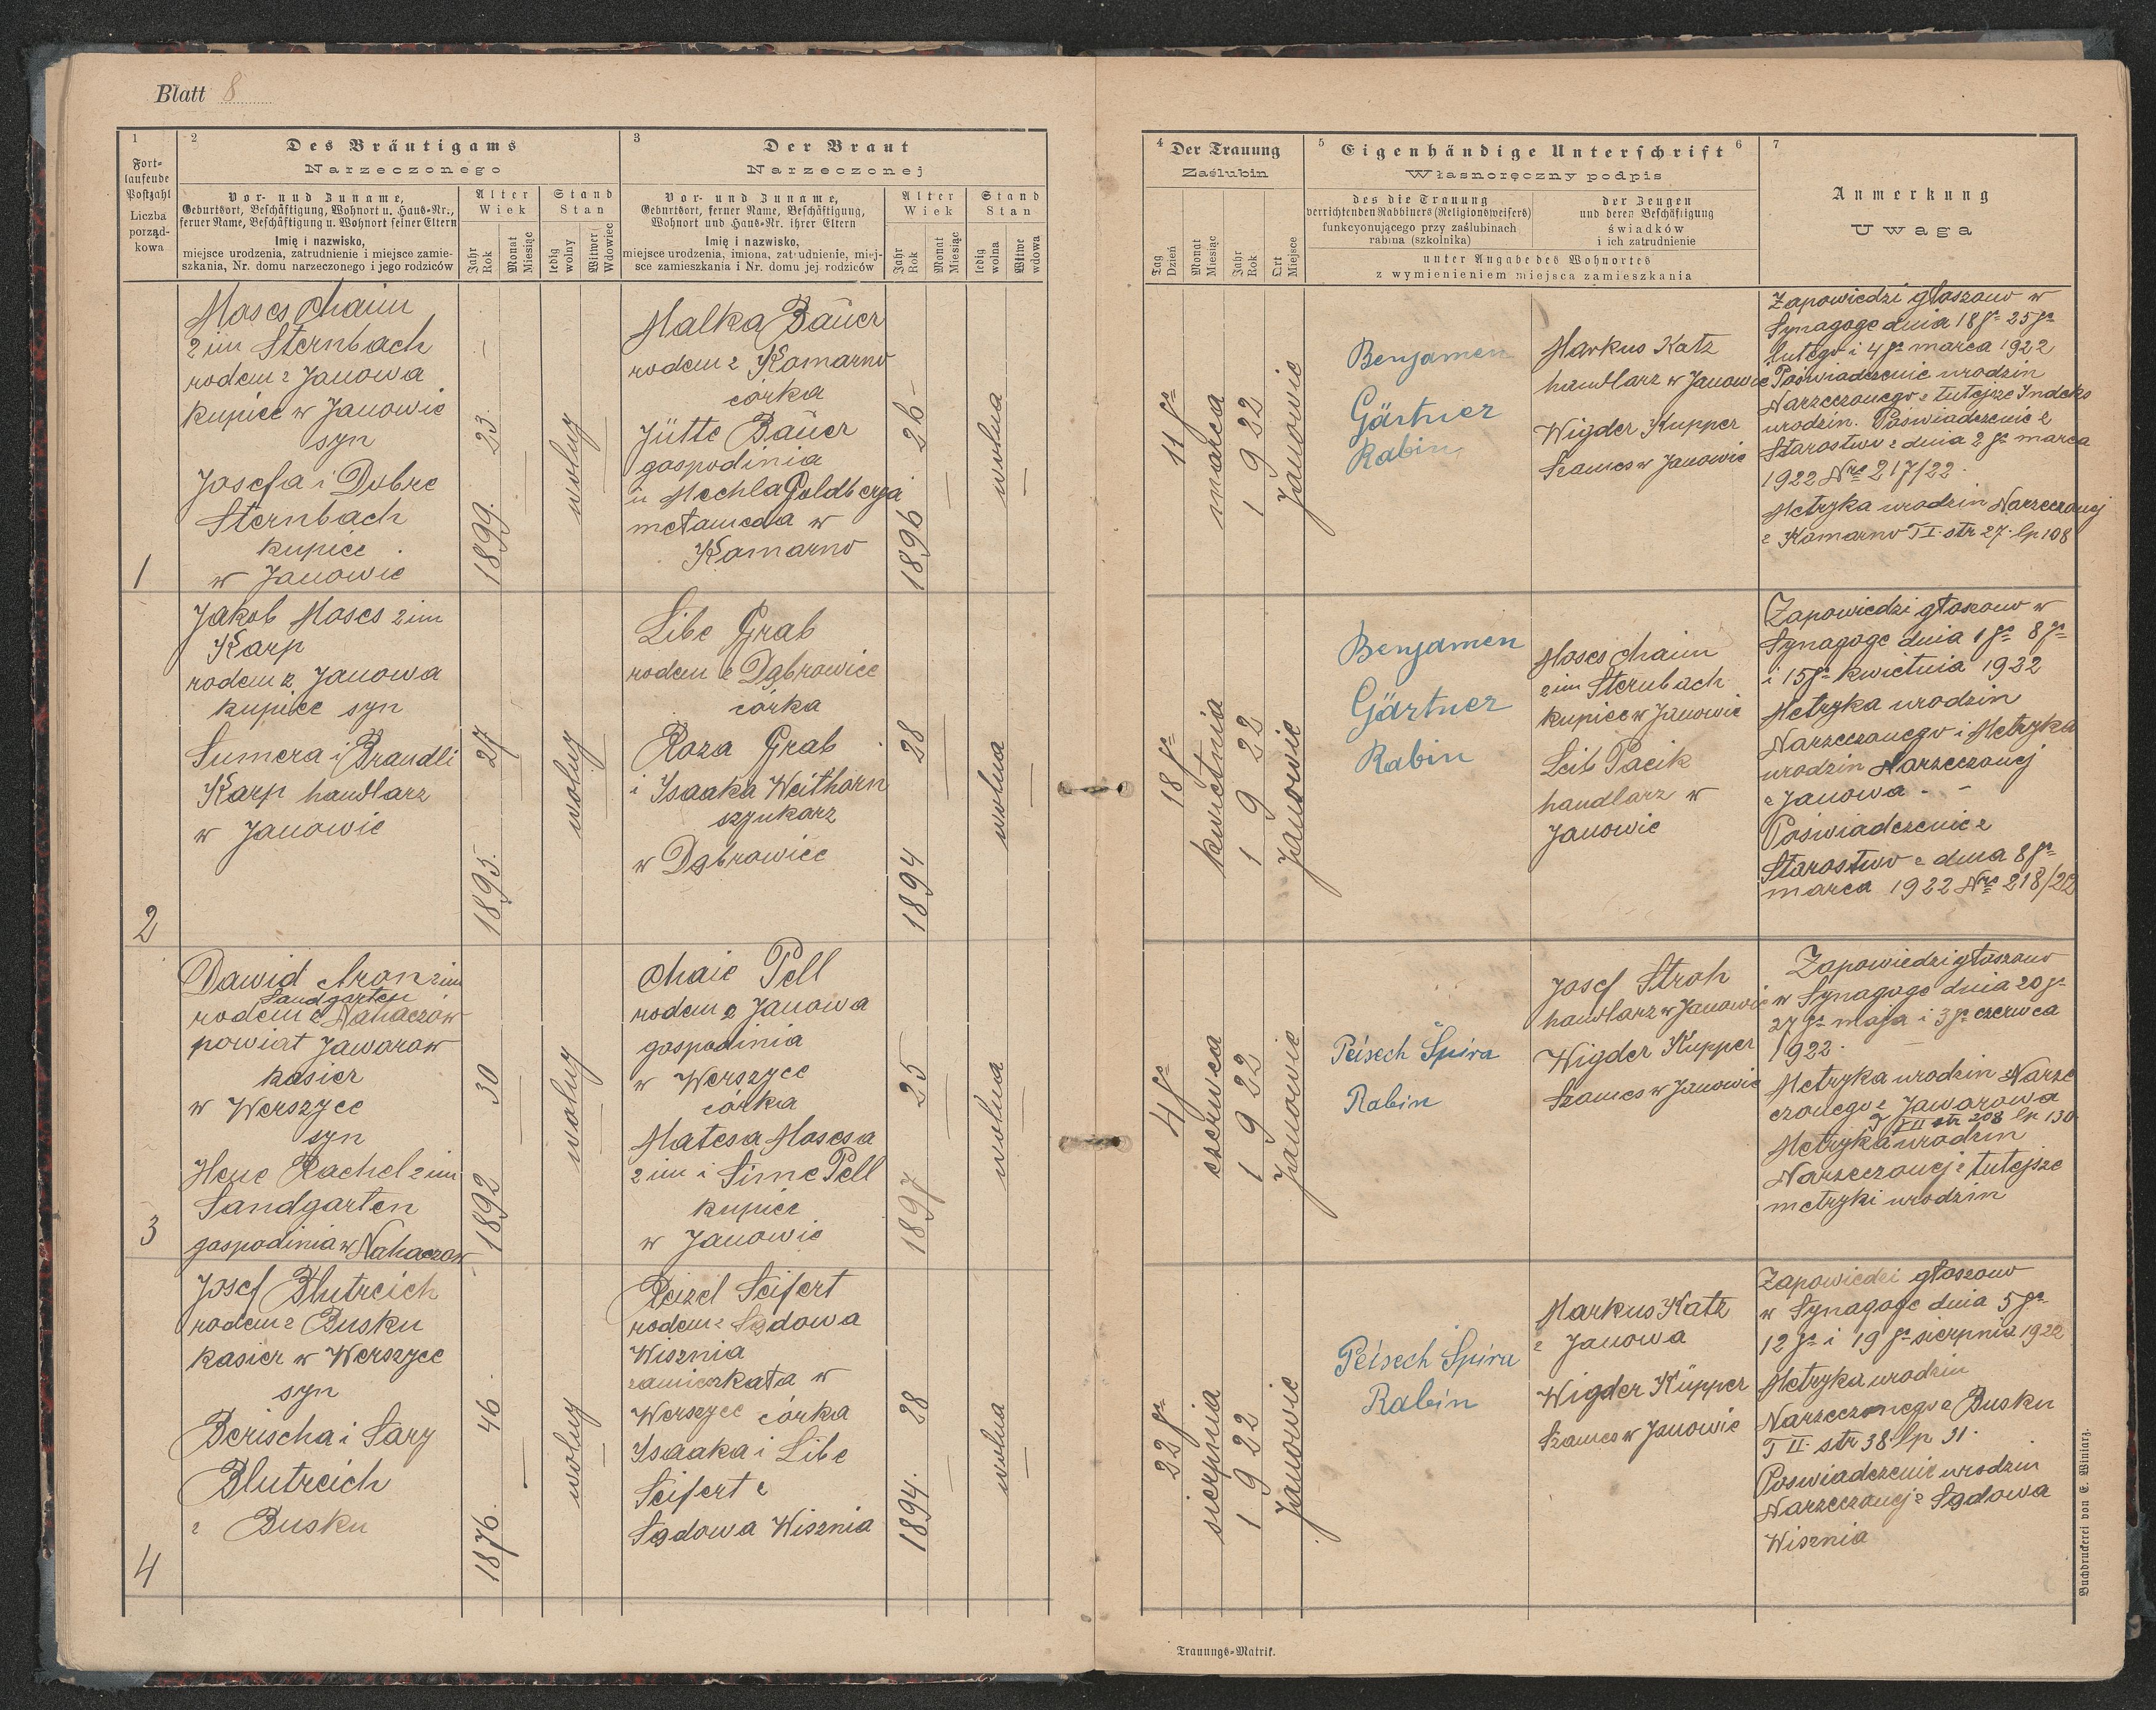 Blatt 8
1
Fort-
laufende
Postzahl
Liczba
porząd-
kowa
2
Des Bräutigams
Narzeczonego
Vor- und Zuname,
Geburtsort, Beschäftigung, Wohnort u. Haus-Nr.,
ferner Name, Beschäftigung u. Wohnort seiner Eltern
Imię i nazwisko,
miejsce urodzenia, zatrudnienie i miejsce zamie-
szkania, Nr. domu narzeczonego i jego rodziców
Alter
Wiek
Jahr
Rok
Monat
Miesiąc
Stand
Stan
ledig
wolny
Witwer
Wdowiec
3
Der Braut
Narzeczonej
Vor- und Zuname,
Geburtsort, ferner Name, Beschäftigung,
Wohnort und Haus-Nr. ihrer Eltern
Imię i nazwisko,
miejsce urodzenia, imiona, zatrudnienie, miej-
sce zamieszkania i Nr. domu jej rodziców
Alter
Wiek
Jahr
Rok
Monat
Miesiąc
Stand
Stan
ledig
wolna
Witwe
wdowa
4
Der Trauung
Zaślubin
Tag
Dzień
Monat
Miesiąc
Jahr
Rok
Ort
Miejsce
5
Eigenhändige Unterschrift
6
Własnoręczny podpis
des die Trauung
verrichtenden Rabbiners (Religionsweisers)
funkcyonującego przy zaślubinach
rabina (szkolnika)
der Zeugen
und deren Beschäftigung
świadków
i ich zatrudnienie
unter Angabe des Wohnortes
z wymienieniem miejsca zamieszkania
7
Anmerkung
Uwaga
1
Moses Chaim
2 im Sternbach
rodem z Janowa
kupiec w Janowie
syn
Josefa i Dobre
Sternbach
kupiec
w Janowie
1899. 23.
wolny
Malka Bäuer
rodem z Komarno
córka
Jütte Bäuer
gospodinia
u Mechla Goldberga
mełameda w
Komarno
1896 26
wolna
11 go
marca
1922
Janowie
Benjamen
Gärtner
Rabin
Markus Katz
handlarz w Janowie
Wigder Kupper
Szames w Janowie
Zapowiedzi głoszono w
Synagoge dnia 18 go 25 go
lutego i 4 go marca 1922
Poświadczenie urodzin
Narzeczonego z tutejsze Indeks
urodzin. Poświadczenie z
Starostwo z dnia 2 go marca
1922 Nro 217/22.
Metryka urodzin Narzeczonej
z Komarno T I. str 27. lp 108
2
Jakob Moses 2 im
Karp
rodem z Janowa
kupiec syn
Sumera i Brandli
Karp handlarz
w Janowie
1895. 27
wolny
Libe Grab
rodem z Dąbrowice
córka
Roza Grab
i Isaaka Weithorn
szynkarz
w Dąbrowice
1894 28
wolna
18 go
kwietnia
1922
Janowie
Benjamen
Gärtner
Rabin
Moses Chaim
2 im Sternbach
kupiec w Janowie
Leib Pacik
handlarz w
Janowie
Zapowiedzi głoszono w
Synagoge dnia 1 go 8 go
i 15 go kwietnia 1922
Metryka urodzin
Narzeczonego i Metryka
urodzin Narzeczonej
z Janowa. -
Poświadczenie z
Starostwo z dnia 8 go
marca 1922 Nro 218/22
3
Dawid Aron 2 im
Sandgarten
rodem z Nahaczow
powiat Jaworow
kasier
w Werszyce
syn
Hene Rachel 2 im
Sandgarten
gospodinia w Nahaczow
1892 30
wolny
Chaie Pell
rodem z Janowa
gospodinia
w Werszyce
córka
Matesa Mosesa
2 im i Sime Pell
kupiec
w Janowie
1897 25
wolna
4 go
czerwca
1922
Janowie
Peisech Spira
Rabin
Josef Stroh
handlarz w Janowie
Wigder Kupper
Szames w Janowie
Zapowiedzi głoszono
w Synagoge dnia 20 go
27 go maja i 3 go czerwca
1922.
Metryka urodzin Narze
czonego z Jaworowa
T III str 208 lp 130
Metryka urodzin
Narzeczonej z tutejsze
metryki urodzin
4
Josef Blutreich
rodem z Busku
kasier w Werszyce
syn
Berischa i Sary
Blutreich
z Busku
1876. 46
wolny
Reizel Seifert
rodem z Sądowa
Wisznia
zamieszkała w
Werszyce córka
Isaaka i Libe
Seifert z
Sądowa Wisznia
1894. 28
wolna
22 go
sierpnia
1922
Janowie
Peisech Spira
Rabin
Markus Katz
z Janowa
Wigder Küpper
Szames w Janowie
Zapowiedzi głoszono
w Synagoge dnia 5 go
12 go i 19 go sierpnia 1922
Metryka urodzin
Narzeczonego z Busku
T II. str 38. lp 31.
Poswiadczenie urodzin
Narzeczonej z Sądowa
Wisznia
Trauungs-Matrik.
Buchdruckerei von E. Winiarz.